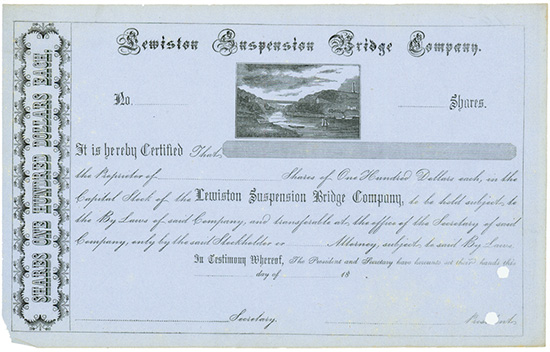 Lewiston Suspension Bridge Company.
No. Shares.
SHARES ONE HUNDRED DOLLARS EACH.
It is hereby Certified That,
the Proprietor of Shares of One Hundred Dollars each, in the
Capital Stock of the Lewiston Suspension Bridge Company, to be held subject, to
the By Laws of said Company, and transferable at, the office of the Secretary of said
Company, only by the said Stockholder or Attorney, subject, to said By Laws.
In Testimony Whereof, The President and Secretary have hereunto set their hands this
day of 18
Secretary.